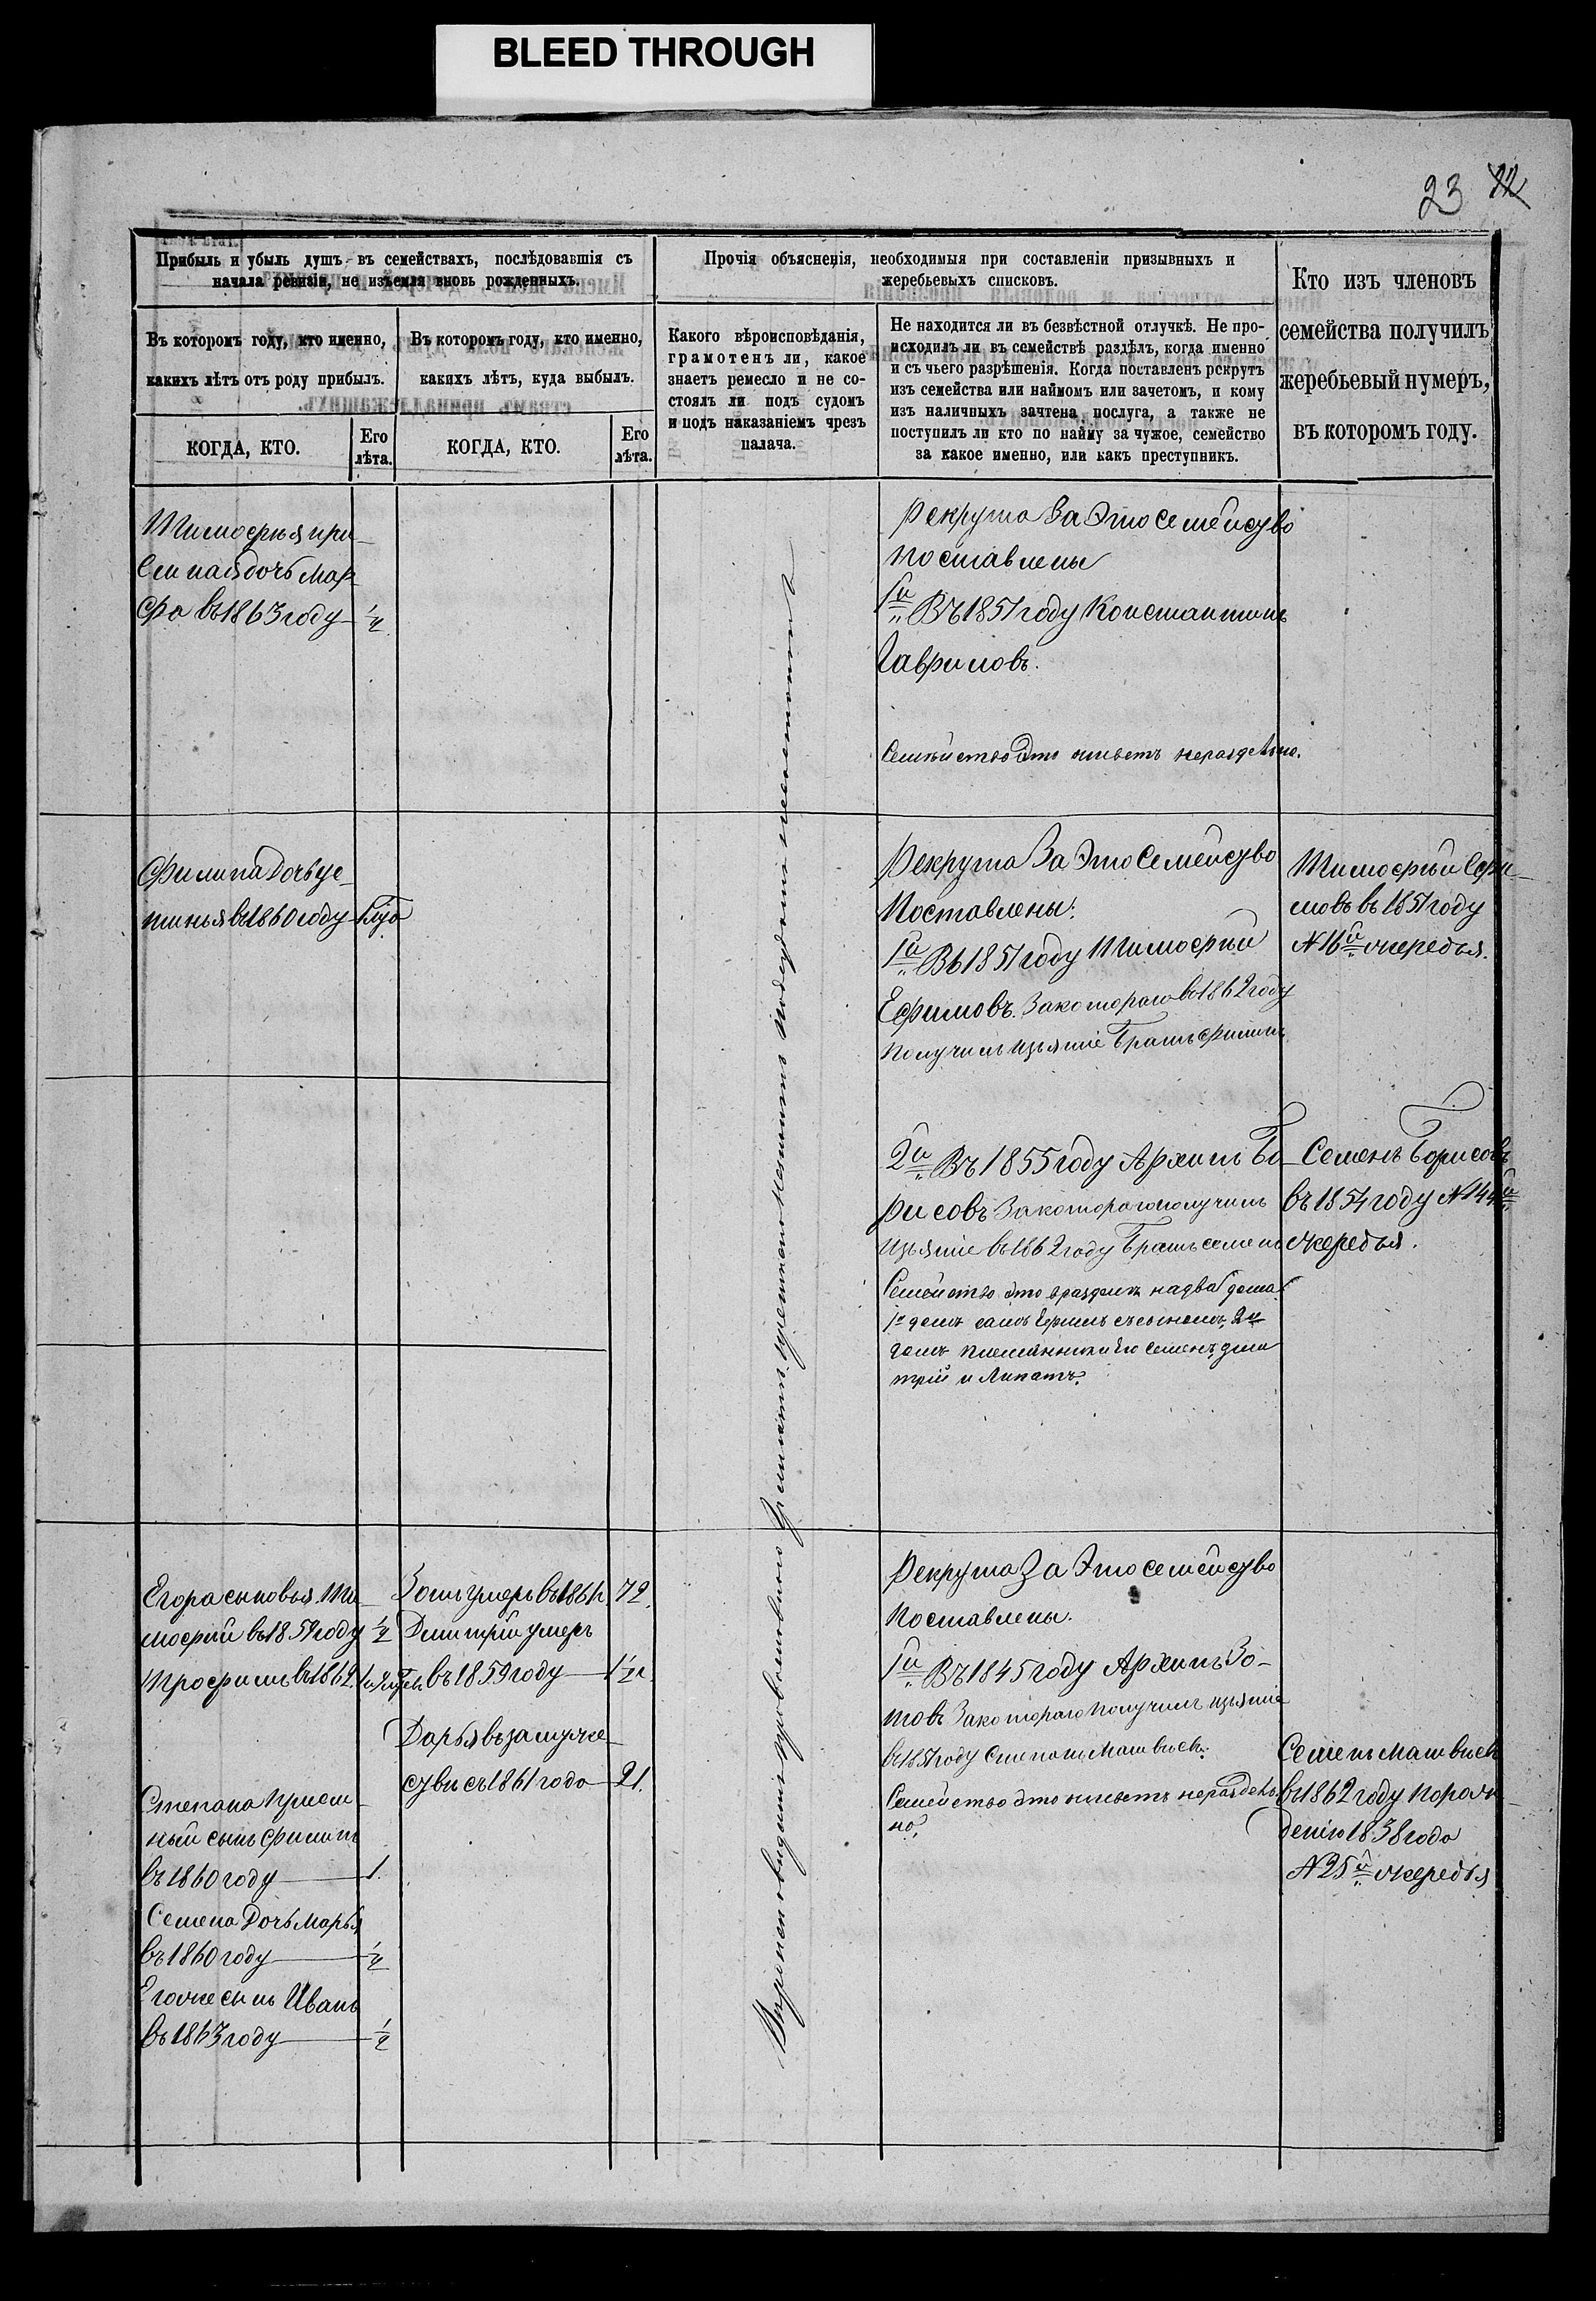 BLEED THROUGH
23
Прибыль и убыль душъ въ семействахъ, послѣдовавшія съ
начала ревизіи, не изъемля вновь рожденныхъ.
Въ которомъ году, кто именно,
какихъ лѣтъ отъ роду прибылъ.
КОГДА, КТО.
Его
лѣта.
Въ которомъ году, кто именно,
какихъ лѣтъ, куда выбылъ.
КОГДА, КТО.
Его
лѣта.
Прочія объясненія, необходимыя при составленіи призывныхъ и
жеребьевыхъ списковъ.
Какого вѣроисповѣданія,
грамотенъ ли, какое
знаетъ ремесло и не со-
стоялъ ли подъ судомъ
и подъ наказаніемъ чрезъ
палача.
Не находится ли въ безвѣстной отлучкѣ. Не про-
исходилъ ли въ семействѣ раздѣлъ, когда именно
и съ чьего разрѣшенія. Когда поставленъ рекрутъ
изъ семейства или наймомъ или зачетомъ, и кому
изъ наличныхъ зачтена послуга, а также не
поступилъ ли кто по найму за чужое, семейство
за какое именно, или какъ преступникъ.
Кто изъ членовъ
семейства получилъ
жеребьевый нумеръ,
въ которомъ году.
Тимофея при
дочь Мар
фа въ 1863 году ½
Рекрута За Это Семейство
поставлены
1й Въ 1851 году Константинъ
Гавриловъ.
Семейство Это живетъ нераздельно.
Филипа Дочь Ус
тинья въ 1860 году
Рекрута За Это Семейство
Поставлены:
1й Въ 1851 году Тимофей
Ефимовъ. За котораго въ 1862 году
Получилъ Братъ Филипъ
Тимофей Ефи
мовъ въ 1851 году
№ 16й очередья.
2й Въ 1855 году Архипъ Бо
рисовъ За котораго получилъ
въ 1862 году Братъ Семенъ
Семенъ Борисовъ
въ 1854 году № 144й
очередья.
Семейство это в разделѣ на два дома
1й домъ самъ Ефимъ съ сыномъ, 2й
домъ племянники Его Семенъ, Дми
трій и Липатъ.
Егора сыновья Ти
мофей въ 1859 году ½
Трофимъ въ 1862
Степана
сынъ Филипъ
въ 1860 году 1.
Семена Дочь Марья
въ 1860 году ½
Егоже сынъ Иванъ
въ 1863 году ½
Зотъ умеръ въ 1861 г. 72.
Дмитрій умеръ
въ 1859 году 1½
Дарья въ замуже
стве съ 1861 года 21.
Рекрута За Это семейство
Поставлены.
1й Въ 1845 году Архипъ Зо-
товъ За котораго Получилъ
въ 1851 году Степанъ Матвеев:
Семейство это живетъ нераздель
но.
Семенъ Матвеев
въ 1862 году порож
денію 1838 года
№ 25й очередья